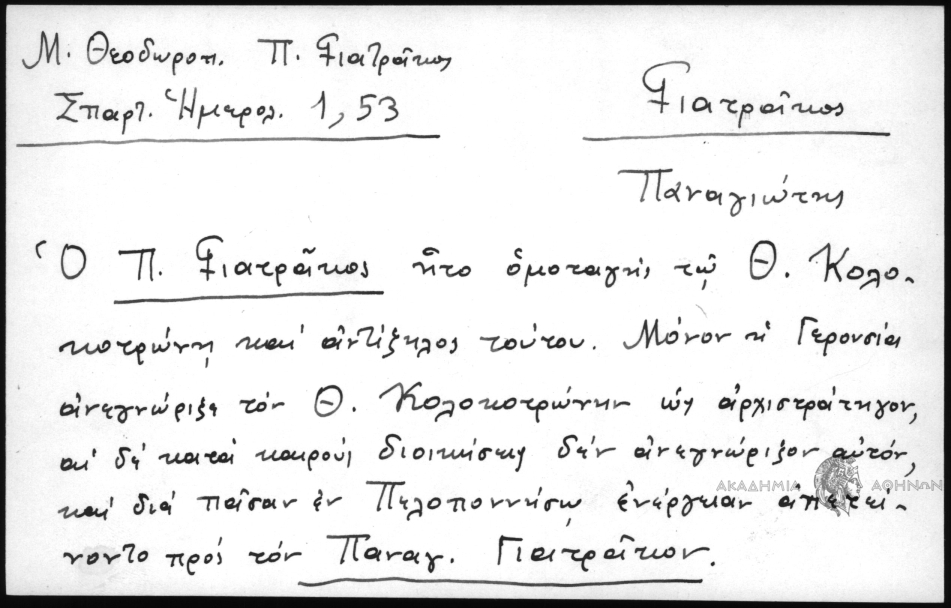 Μ. Θεοδωροπ. Π. Γιατράκος
Σπαρτ. Ἡμερολ. 1, 53
Γιατρᾶκος
Παναγιώτης
Ὁ Π. Γιατρᾶκος ἦτο ὁμοταγής τῷ Θ. Κολο-
κοτρώνη καί ἀντίζηλος τούτου. Μόνον ἡ Γερουσία
ἀνεγνώριζε τόν Θ. Κολοκοτρώνην ὡς ἀρχιστράτηγον,
αἱ δέ κατά καιρούς διοικήσεις δέν ἀνεγνώριζον αὐτόν,
καί διά πᾶσαν ἐν Πελοποννήσῳ ἐνέργειαν ἀπετεί-
νοντο πρός τόν Παναγ. Γιατρᾶκον.
ΑΚΑΔΗΜΙΑ ΑΘΗΝΩΝ